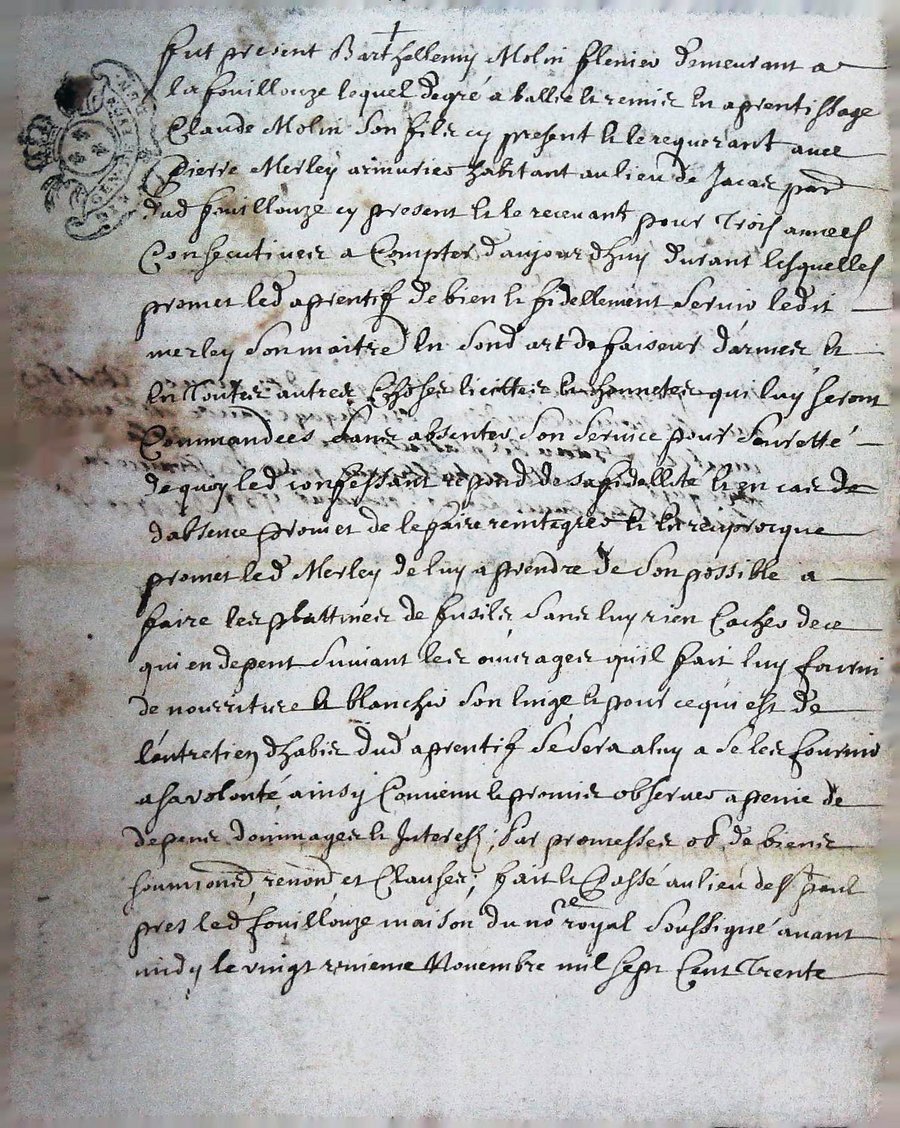 fut present Barthellemy Molin demeurant a
lafouillouze lequel degré a ballié & remis en aprentissage
Claude Molin son fils cy present & le requerant avec
Pierre Merley armurier habitant au lieu de par
dud fouillouze cy present & le recevant pour Trois années
Consecutives a Compter daujourdhuy durant lesquelles
promet led aprentif de bien & fidellement servir ledit
merley son maitre en sond art de faiseur darmes &
en Toutes autres Choses licittes & honnetes qui luy seront
Commandees sans absenter son service pour seuretté
dequoy led confessant repond de sa fidellité & en cas de
dabsence promet de le faire reintegrer & en reciprocque
promet led Merley de luy aprendre de son possible a
faire les plattines de fusils sans luy rien Cacher dece
qui en depent suivant les ouvrages quil fait luy fournir
de nourriture & blanchir son linge & pour cequi est de
lentretien dhabis dud aprentif se sera a luy a se les fournir
asa volonté, ainsy Convenu & promis observer a penie de
depens dommages & Interest, sur promesses ob de biens
soumiond, renond et Clauses, fait & Passé au lieu de
pres led fouillouze maison du nore royal soussigné avant
midy le vingt Novembre mil sept Cent Trente